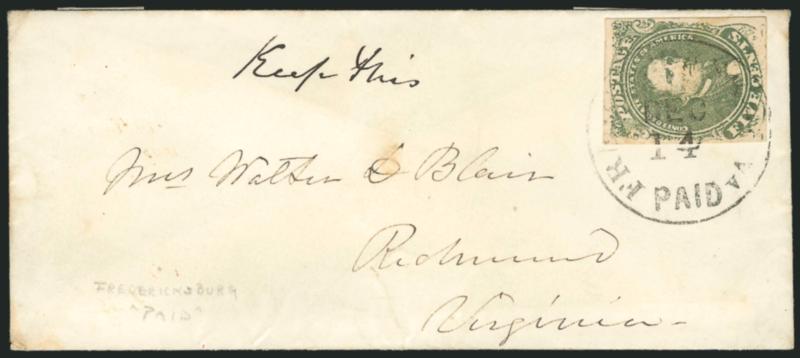 Keep this
POSTAGE
FIVE CENTS
CONFEDERATE STATES OF AMERICA
FR
VA
DEC
14
PAID
Mrs Walter D Blair
Richmond
Virginia
FREDERICKSBURG
"PAID"